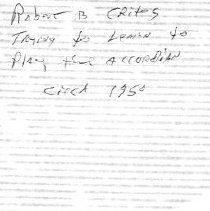 Robert B Crites
Trying to Learn to
Play the Accordian
circa 1950